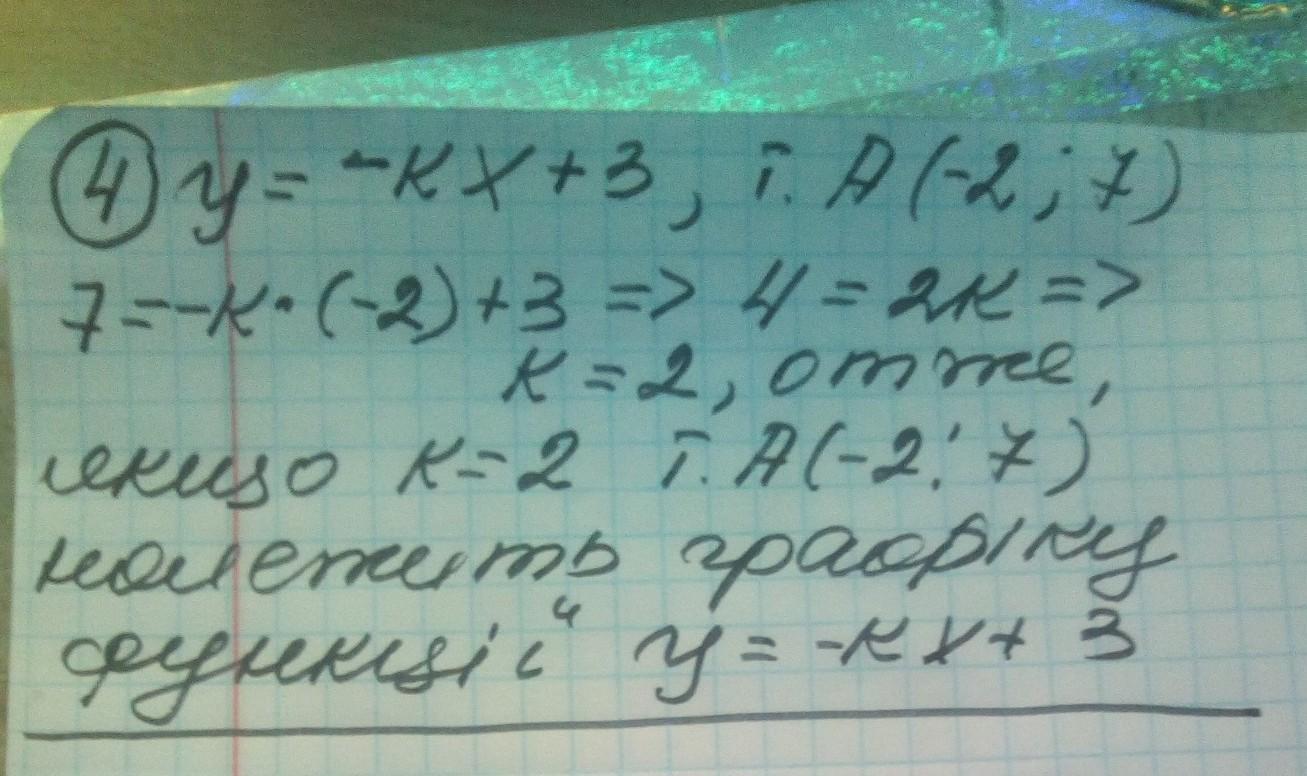 ④ y = -кx + 3, т. A (-2; 7)
7 = -к · (-2) + 3 => 4 = 2к =>
к = 2, отже,
якщо к = 2 т. A (-2; 7)
належить графіку
функції y = -кx + 3